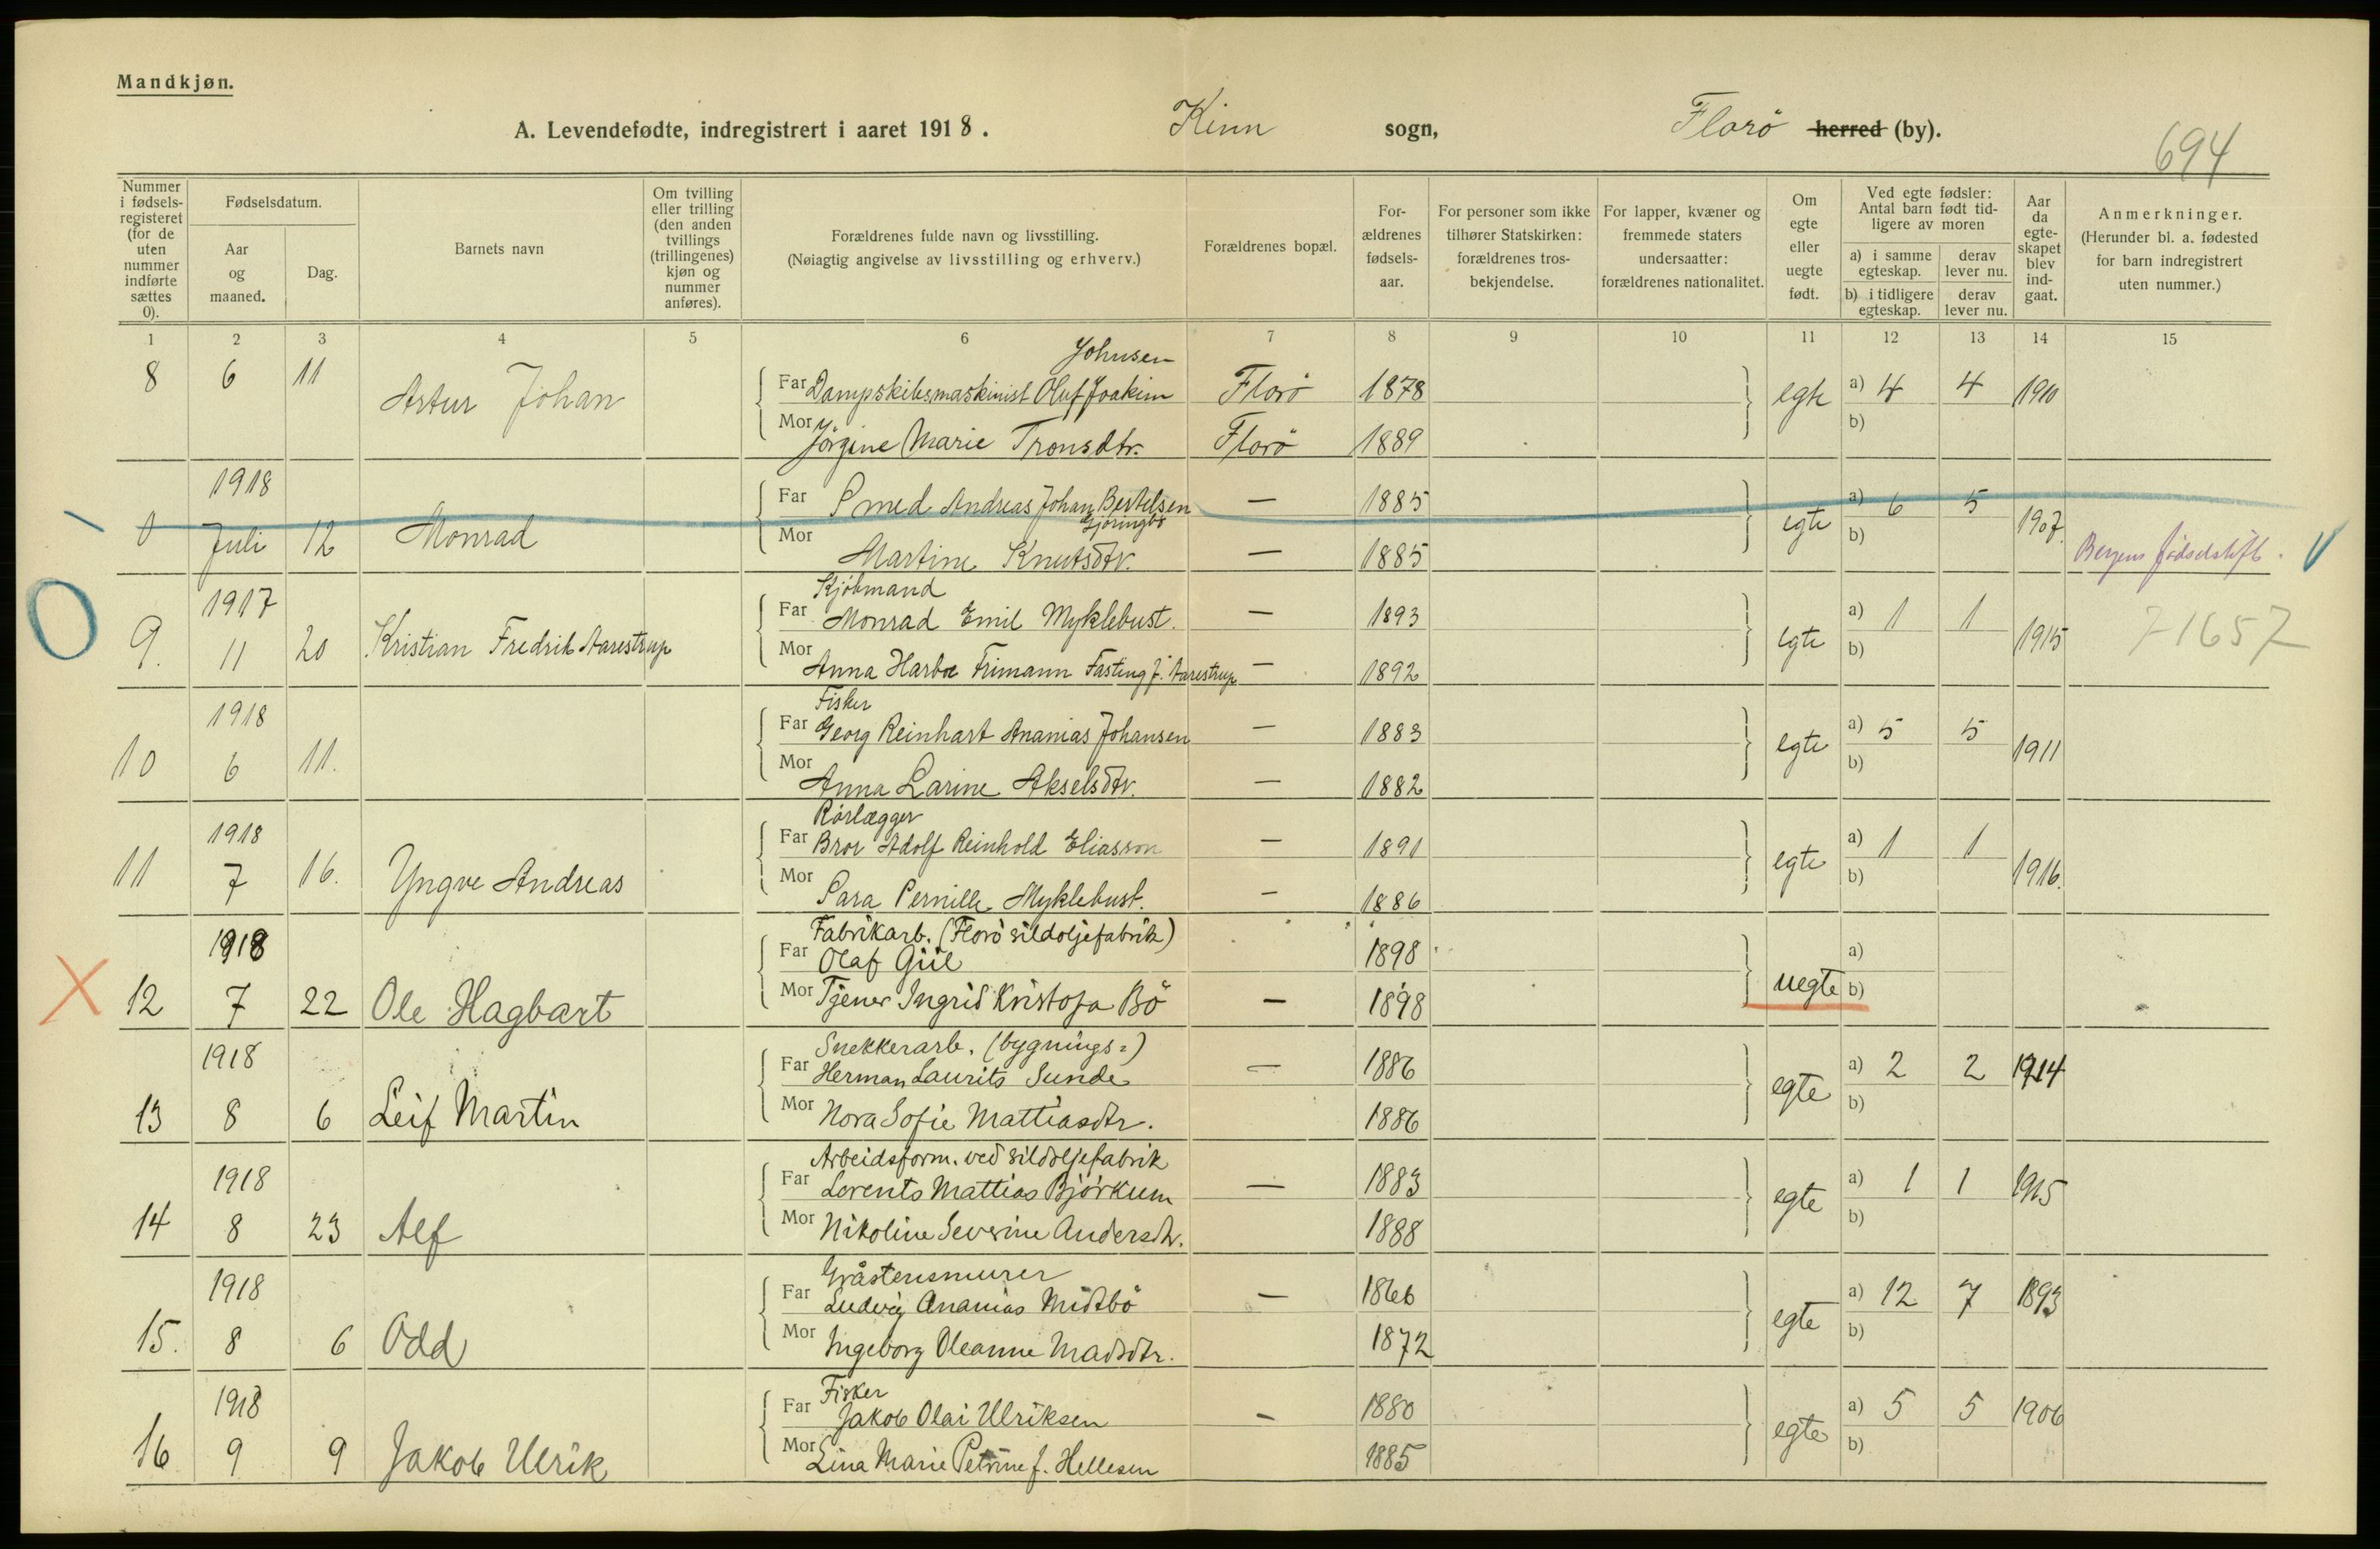 Mandkjøn.
A. Levendefødte, indregistrert i aaret 1918. Kinn sogn, Florö herred (by).
694
Nummer i fødsels-registeret (for de uten nummer indførte sættes 0).
Fødselsdatum.
Aar og maaned.
Dag.
Barnets navn
Om tvilling eller trilling (den anden tvillings (trillingenes) kjøn og nummer anføres).
Forældrenes fulde navn og livsstilling.
(Nøiagtig angivelse av livsstilling og erhverv.)
Forældrenes bopæl.
For-ældrenes fødsels-aar.
For personer som ikke tilhører Statskirken: forældrenes tros-bekjendelse.
For lapper, kvæner og fremmede staters undersaatter: forældrenes nationalitet.
Om egte eller uegte født.
Ved egte fødsler: Antal barn født tid-ligere av moren
a) i samme egteskap.
derav lever nu.
b) i tidligere egteskap.
derav lever nu.
Aar da egte-skapet blev ind-gaat.
Anmerkninger.
(Herunder bl. a. fødested for barn indregistrert uten nummer.)
1 2 3 4 5 6 7 8 9 10 11 12 13 14 15
Johnsen
8 6 11 Artur Johan Far Dampskibsmaskinist Oluf Joakim Florö 1878 egte a) 4 4 1910
Mor Jörgine Marie Tronsdtr. Florö 1889 b)
1918 Far Smed Andreas Johan Bertelsen — 1885 a) 6 5
Gjöringbö
0 Juli 12 Monrad Mor Martine Knutsdtr. — 1885 egte b) 1907 Bergens fødselstift.
Kjöbmand
1917 Far Monrad Emil Myklebust. — 1893 a) 1 1
9. 11 20 Kristian Fredrik Aarestrup Mor Anna Harboe Frimann Fasting f. Aarestrup — 1892 egte b) 1915 71657
Fisker
1918 Far Georg Reinhart Ananias Johansen — 1883 a) 5 5
10 6 11. Mor Anna Larine Akselsdtr. — 1882 egte b) 1911
Rörlægger
1918 Far Bror Adolf Reinhold Eliasson — 1891 a) 1 1
11 7 16. Yngve Andreas Mor Sara Pernille Myklebust. — 1886 egte b) 1916.
Fabrikarb. (Florö sildoljefabrik)
1918 Far Olaf Güil 1898 a)
12 7 22 Ole Hagbart Mor Tjener Ingrid Kristofa Bö — 1898 uegte b)
Snekkerarb. (bygnings=)
1918 Far Herman Laurits Sunde — 1886 a) 2 2 1914
13 8 6 Leif Martin Mor Nora Sofie Mattiasdtr. 1886 egte b)
Arbeidsform. ved sildoljefabrik
1918 Far Lorents Mattias Björkum — 1883 a) 1 1 1915
14 8 23 Alf Mor Nikoline Severine Andersdtr. 1888 egte b)
Gråstensmurer
1918 Far Ludvig Ananias Midtbö — 1866 a) 12 7 1893
15. 8 6 Odd Mor Ingeborg Oleanne Madsdtr. 1872 egte b)
Fisker
1918 Far Jakob Olai Ulriksen — 1880 a) 5 5 1906
16 9 9 Jakob Ulrik Mor Lina Marie Petrine f. Hellesen 1885 egte b)